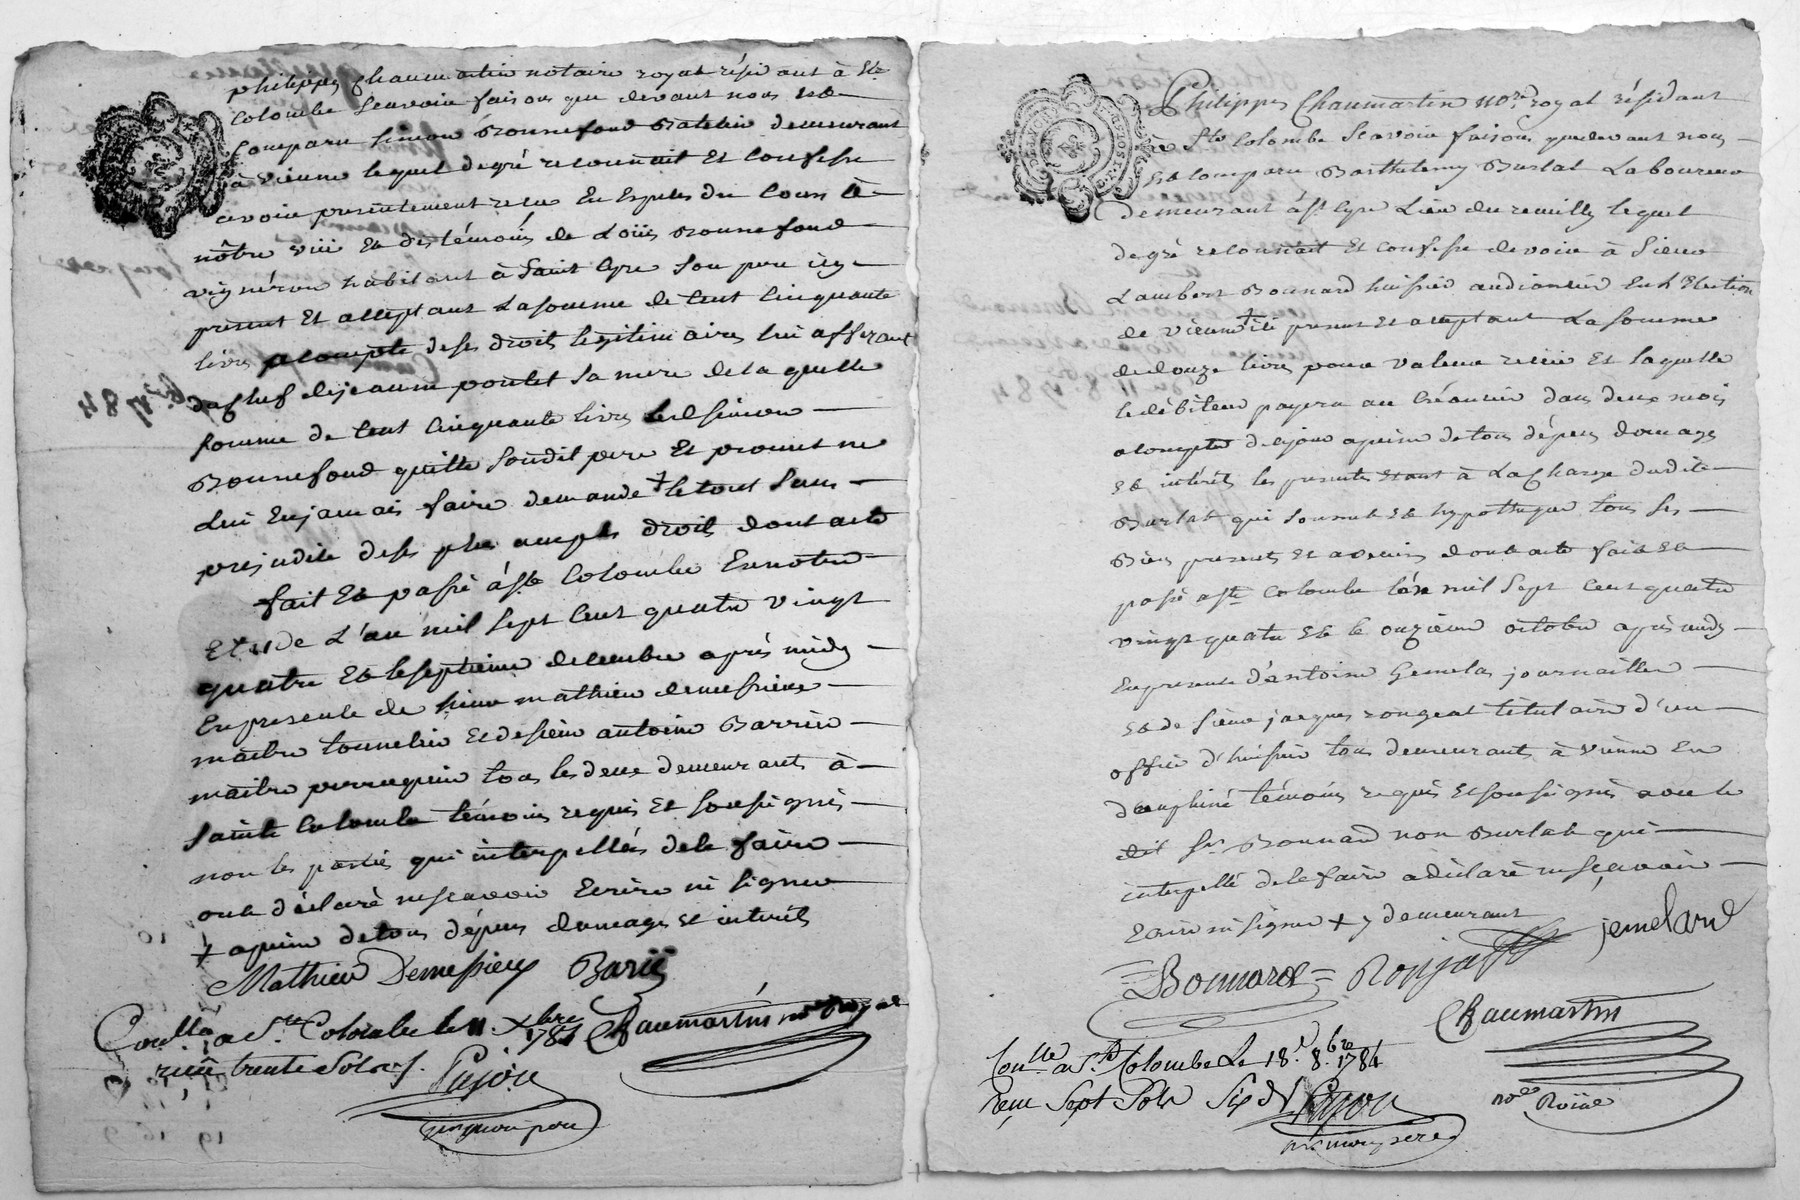 philippes chaumartin notaire royal résidant à Ste
Colombe Scavoir faisons que devant nous est
comparu simon Bonnefond Batelier demeurant
à vienne lequel de gré reconnait et confesse
avoir presentement recu En Espèces du Cours à
nôtre vüe et des témoins de Loüis Bonnefond
vigneron habitant à Saint Cyre son pere icy
present et acceptant La somme de Cent Cinquante
livres acompte de ses droits legitimaires lui afferant
du chef de jeanne poulet sa mere de la quelle
somme de Cent Cinquante livres Ledt simon
Bonnefond quitte sondit pere et promet ne
Lui En jamais faire demande + le tout sans
prejudice de ses plus amples droits dont acte
fait et passé à Ste Colombe En notre
Etude L'an mil Sept Cent quatre vingt
quatre et le septieme decembre après midy
En presence de sieur mathieu demessieux
maitre tonnelier et de sieur antoine Barrier
maitre perruquier tous les deux demeurants à
Sainte Colombe témoins requis et soussignés
non les parties qui interpellées de le faire
ont déclaré ne scavoir Ecrire ni signer
+ apeine de tous dépens domages et interets
Mathieu Demessieux Barié
Chaumartin nore Royal
Conllé a Ste Colombe le 11 Xbre 1784
reçu trente sols
Pujon
6 Xbre 1784
Philippes Chaumartin nore royal résidant
à Ste Colombe Scavoir faisons que devant nous
est comparu Barthelemy Burlat Laboureur
demeurant à St Cyre Lieu du remilly lequel
de gré reconnait et confesse devoir à Sieur
Lambert Bonnard huissier audiancier En L'Election
de vienne + ici present et acceptant La somme
de douze livres pour valeur recüe et laquelle
le débiteur payera au Créancier dans deux mois
a compter de ce jour apeine de tous dépens domages
et intérêts les presentes étant à La Charge dudit
Burlat qui soumet et hypotheque tous ses
Biens presents et avenirs dont acte fait et
passé a Ste Colombe L'an mil Sept Cent quatre
vingt quatre et le onzieme octobre après midy
En presence d'antoine Gemelas journaillier
et de sieur jacques rongeat titulaire d'un
office d'huissier tous demeurants à vienne En
dauphiné témoins requis et soussignés avec le
dit Sr Bonnard non Burlat qui
interpellé de le faire a déclaré ne scavoir
Ecrire ni signer + y demeurant
jemelard
Bonnard Ronjat
Chaumartin
nore Roial
Conlle a Ste Colombe Le 18e 8bre 1784
reçu Sept Sols Six d
Pujon